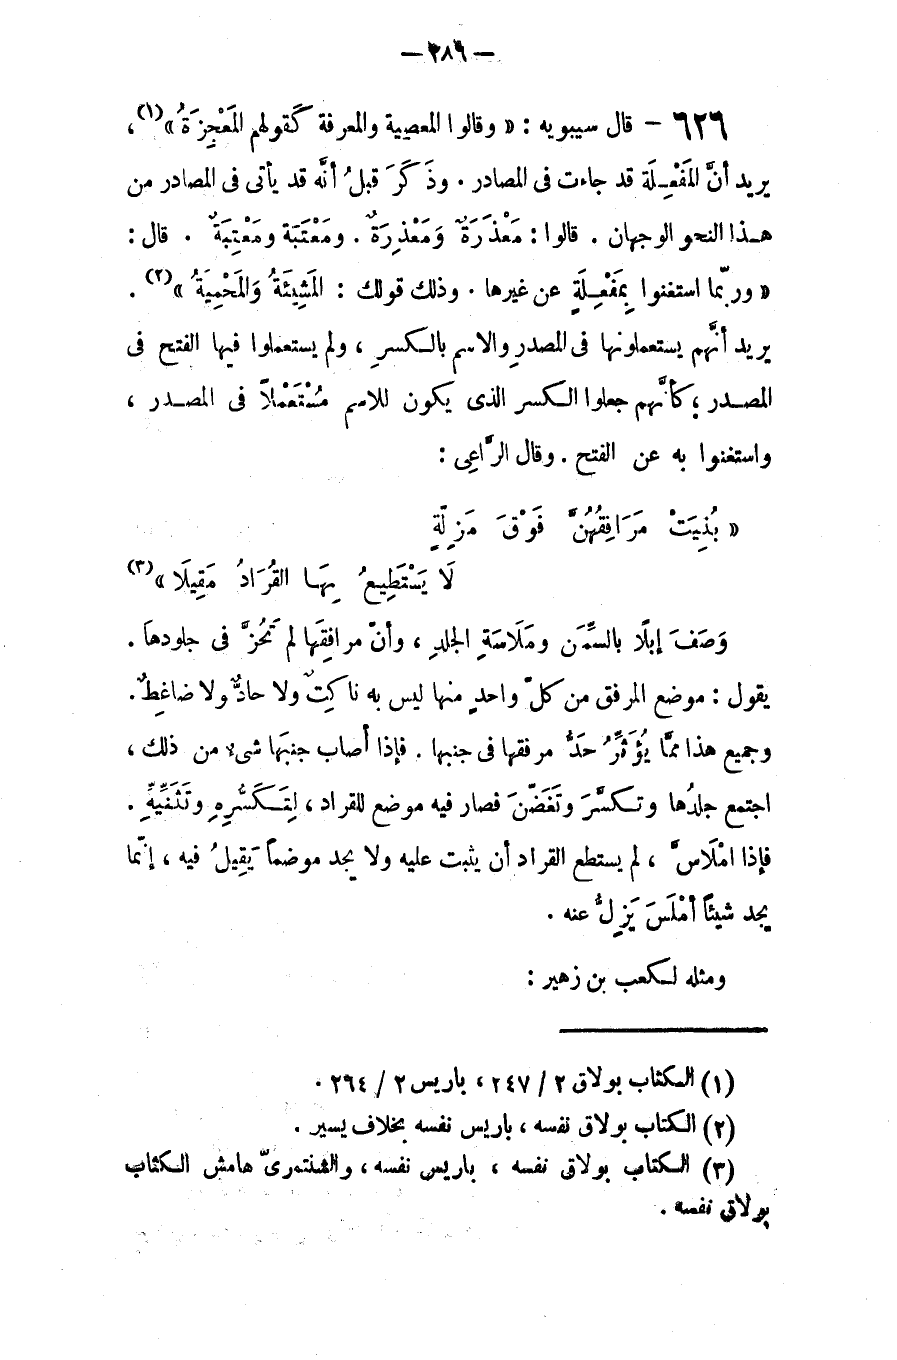 — ٢٨٩ —
٦٢٦ — قال سيبويه : « وقالوا المعصية والمعرفة كَقولهم المَعْجِزَةُ »(١)،
يريد أنَّ المَفْعِلَة قد جاءت فى المصادر . وذَكَرَ قبلُ أنَّه قد يأتى فى المصادر من
هـذا النحو الوجهان . قالوا : مَعْذَرَةٌ وَمَعْذِرَةٌ . ومَعْتَبَة ومَعْتِبَةٌ . قال :
« وربّما استغنوا بِمَفْعِـلَةٍ عن غيرها . وذلك قولك : المَشِيئَةُ وَالمَحْمِيَةُ »(٢) .
يريد أنَّهم يستعملونها فى المصدرِ والاسم بالـكسرِ ، ولم يستعملوا فيها الفتح فى
المصـدر ؛ كأنَّهم جعلوا الـكسر الذى يكون للاسم مُسْتَعْمَلاً فى المصـدر ،
واستغنوا به عن الفتح . وقال الرَّاعِى :
« بُنِيَتْ مَرَافِقُهُنَّ فَوْقَ مَزِلَّةٍ
لَا يَسْتَطِيعُ بِهَا القُرَادُ مَقِيلَا »(٣)
وَصَفَ إبلًا بالسِّمَن ومَلَاسَةِ الجلدِ ، وأنّ مرافِقَها لم تَحُزَّ فى جلودهَا .
يقول : موضع المرفق من كلّ واحدٍ منها ليس به ناكِتٌ ولا حادٌّ ولا ضاغِطٌ .
وجميع هذا ممَّا يُؤَثِّرُ حَدُّ مرفقها فى جنبها . فإذا أصاب جنبَهَا شىء من ذلك ،
اجتمع جلدُها وتـكسَّرَ وتَغَضّنَ فصار فيه موضع للقراد ، لِتَـكَسُّرِهِ وتَثَنِّيهِ .
فإذا امْلَاسَّ ، لم يستطع القراد أن يثبت عليه ولا يجد موضعاً يَقِيلُ فيه ، إنّما
يجد شيئاً أمْلَسَ يَزِلُّ عنه .
ومثله لـكعب بن زهير :
(١) الـكتاب بولاق ٢ / ٢٤٧ ، باريس ٢ / ٢٦٤ .
(٢) الـكتاب بولاق نفسه ، باريس نفسه بخلاف يسير .
(٣) الـكتاب بولاق نفسه ، باريس نفسه ، والشنتمرىّ هامش الـكتاب
بولاق نفسه .